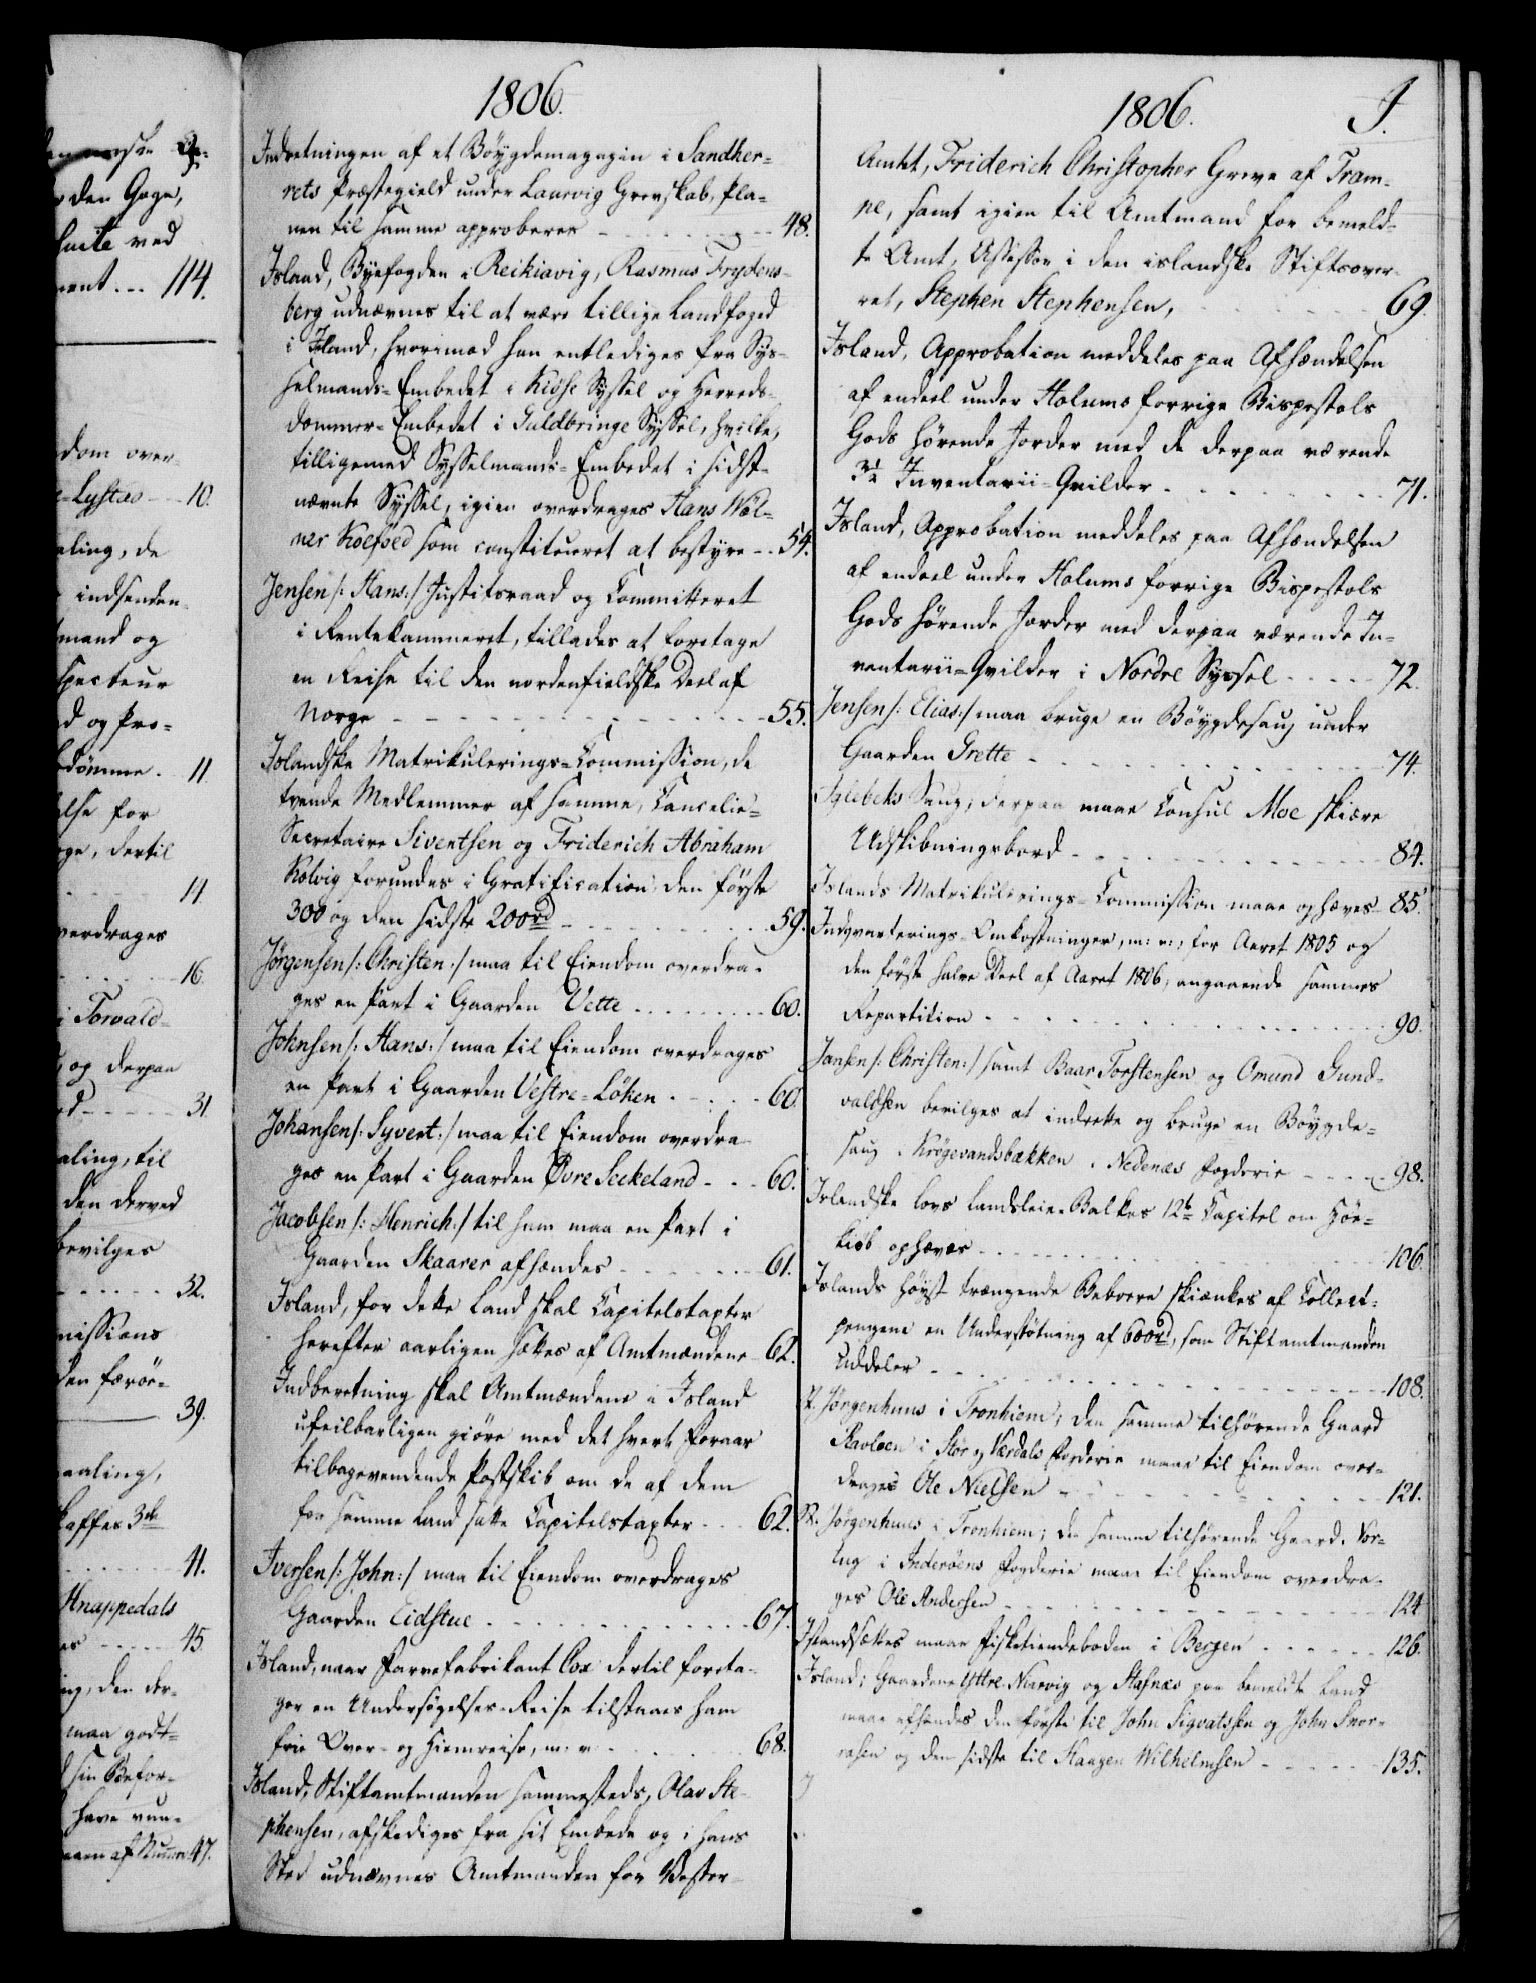 den Gage,
ved
114.
dom over-
Lystas - - 10.
aling, de
indsenden-
mand og
specteur
d og Pro-
dömme. 11.
else for
ge, dertil
11
overdrages
16.
i Torvald-
og derpaa
31.
aling, til
den derved
bevilges
32.
missions
den færöe-
39.
aaling,
41.
Hnappedals
45.
ing, den der-
maa godt-
sin Befor-
have vun-
47.
1806.
Indretningen af et Böygdemagazin i Sandher-
rets Præstegield under Laurvig Grevskab, Pla-
nen til samme approberes - - - 48.
Island, Byefogden i Reikiavig, Rasmus Frydens-
berg udnævnes til at være tillige Landfoged
i Island, hvorimod han entlediges fra Sys-
selmands-Embedet i Kiose Syssel og Herreds-
dommer-Embedet i Guldbringe Syssel, hvilke,
tilligemed Sysselmands-Embedet i sidst-
nævnte Syssel, igien overdrages Hans Wöl-
ner Koefoed som constitueret at bestyre - - 54.
Jensen /: Hans :/ Justitsraad og Committeret
i Rentekammeret, tillades at foretage
en Reise til den nordenfieldske Deel af
Norge - - - 55.
Islandske Matrikulerings-Commission, de
tvende Medlemmer af samme, Cancelie-
Secretaire Siventsen og Friderich Abraham
Kolvig forundes i Gratification: den förste
300 og den sidste 200 rd - - - 59.
Jörgensen /: Christen :/ maa til Eiendom overdra-
ges en Part i Gaarden Vette - - - 60.
Johnsen /: Hans :/ maa til Eiendom overdrages
en Part i Gaarden Vestre-Löken - - - 60.
Johansen /: Syvert :/ maa til Eiendom overdra-
ges en Part i Gaarden Övre Seekeland - - - 60.
Jacobsen /: Henrich :/ til ham maa en Part i
Gaarden Skaarer afhændes - - - 61.
Island, for dette Land skal Capitelstaxter
herefter aarligen sættes af Amtmændene - 62.
Indberetning skal Amtmændene i Island
ufeilbarligen giöre med det hvert Foraar
tilbagevendende Postskib om de af dem
for samme Land satte Capitelstaxter - - - 62.
Iversen /: John :/ maa til Eiendom overdrages
Gaarden Eidstue - - - 67.
Island, naar Farvefabrikant Cox dertil foreta-
ger en Undersögelses-Reise tilstaaes ham
frie Over- og Hiemreise, m. v. - - - 68.
Island, Stiftamtmanden sammesteds, Olav Ste-
phensen, afskediges fra sit Embede og i hans
Sted udnævnes Amtmanden for Vester-
1806. J.
Amtet, Friderich Christopher Greve af Tram-
pe, samt igien til Amtmand for bemeld-
te Amt, Assessor i den islandske Stiftsover-
ret, Stephen Stephensen, - - - 69.
Island, Approbation meddeles paa Afhændelsen
af endeel under Holums forrige Bispestols
Gods hörende Jorder med de derpaa værende
3de Inventarii-Qvilder - - - 71.
Island, Approbation meddeles paa Afhændelsen
af endeel under Holums forrige Bispestols
Gods hörende Jorder med derpaa værende In-
ventarii-Qvilder i Nordre Syssel - - - 72.
Jensen /: Elias :/ maa bruge en Böygdesaug under
Gaarden Grette - - - 74.
Iglebeks Saug, derpaa maae Consul Moe skiære
Udskibningsbord - - - 84.
Islands Matrikulerings-Commission maae ophæves - 85.
Indqvarterings-Omkostninger, m: v:, for Aaret 1805 og
den förste halve Deel af Aaret 1806, angaaende sammes
Repartition - - - 90.
Jansen /: Christen :/ samt Baar Torstensen og Omund Gund-
valdsen bevilges at indrette og bruge en Böygde-
saug i Krögevandsbækken i Nedenæs Fogderie - - - 98.
Islandske Lovs Landsleie-Balkes 12te Capitel om För-
kiöb ophæves - - - 106.
Islands höyst trængende Beboere skiænkes af Collect-
pengene en Understötning af 600 rd, som Stiftamtmanden
uddeler - - - 108.
St. Jörgenhuus i Tronhiem; den samme tilhörende Gaard
Ravloen i Stör og Værdals Fogderie maae til Eiendom over-
drages Ole Nielsen - - - 121.
St. Jörgenhuus i Tronhiem; den samme tilhörende Gaard, Vor-
lug i Inderöens Fogderie maae til Eiendom overdra-
ges Ole Andersen - - - 124
Istandsættes maae Fisketiendeboden i Bergen - - - 126.
Island; Gaardene Yttre-Niarvig og Stafnæs paa bemeldte Land
maae afhændes den förste til John Sigvatssen og John Snor-
rasen og den sidste til Haagen Wilhelmsen - - - 135.